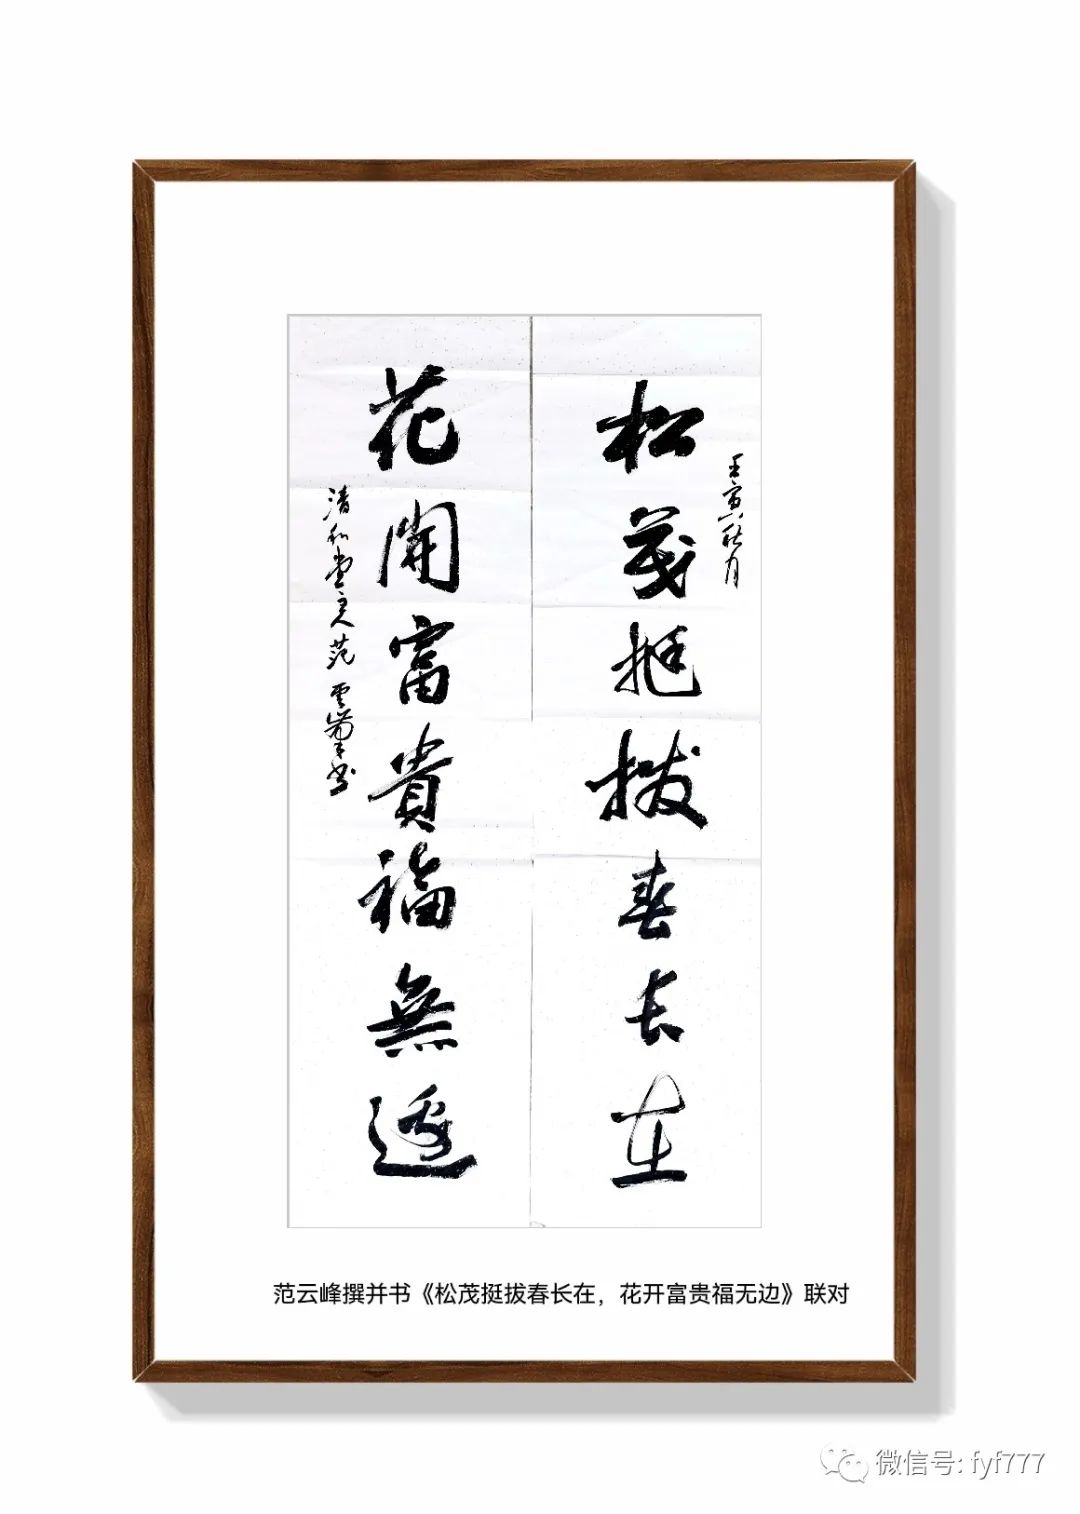 松茂挺拔春長在
壬寅秋月
花開富貴福無邊
清和堂主人范雲峯书
范云峰撰并书《松茂挺拔春长在，花开富贵福无边》联对
微信号: fyf777